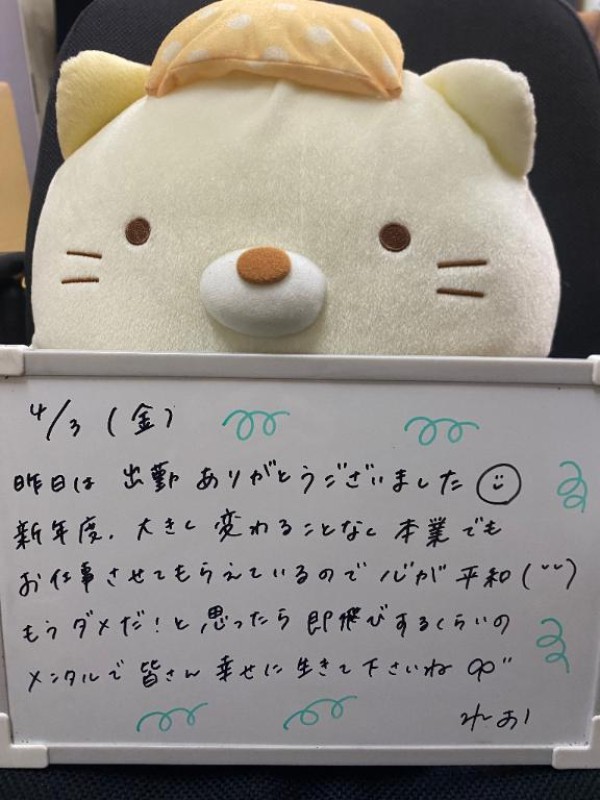 4/3 (金)
昨日は 出勤 ありがとうございました
新年度、大きく変わることなく 本業でも
お仕事させてもらえているので 心が平和
もうダメだ!と思ったら 即飛びするくらいの
メンタルで 皆さん 幸せに 生きて下さいね